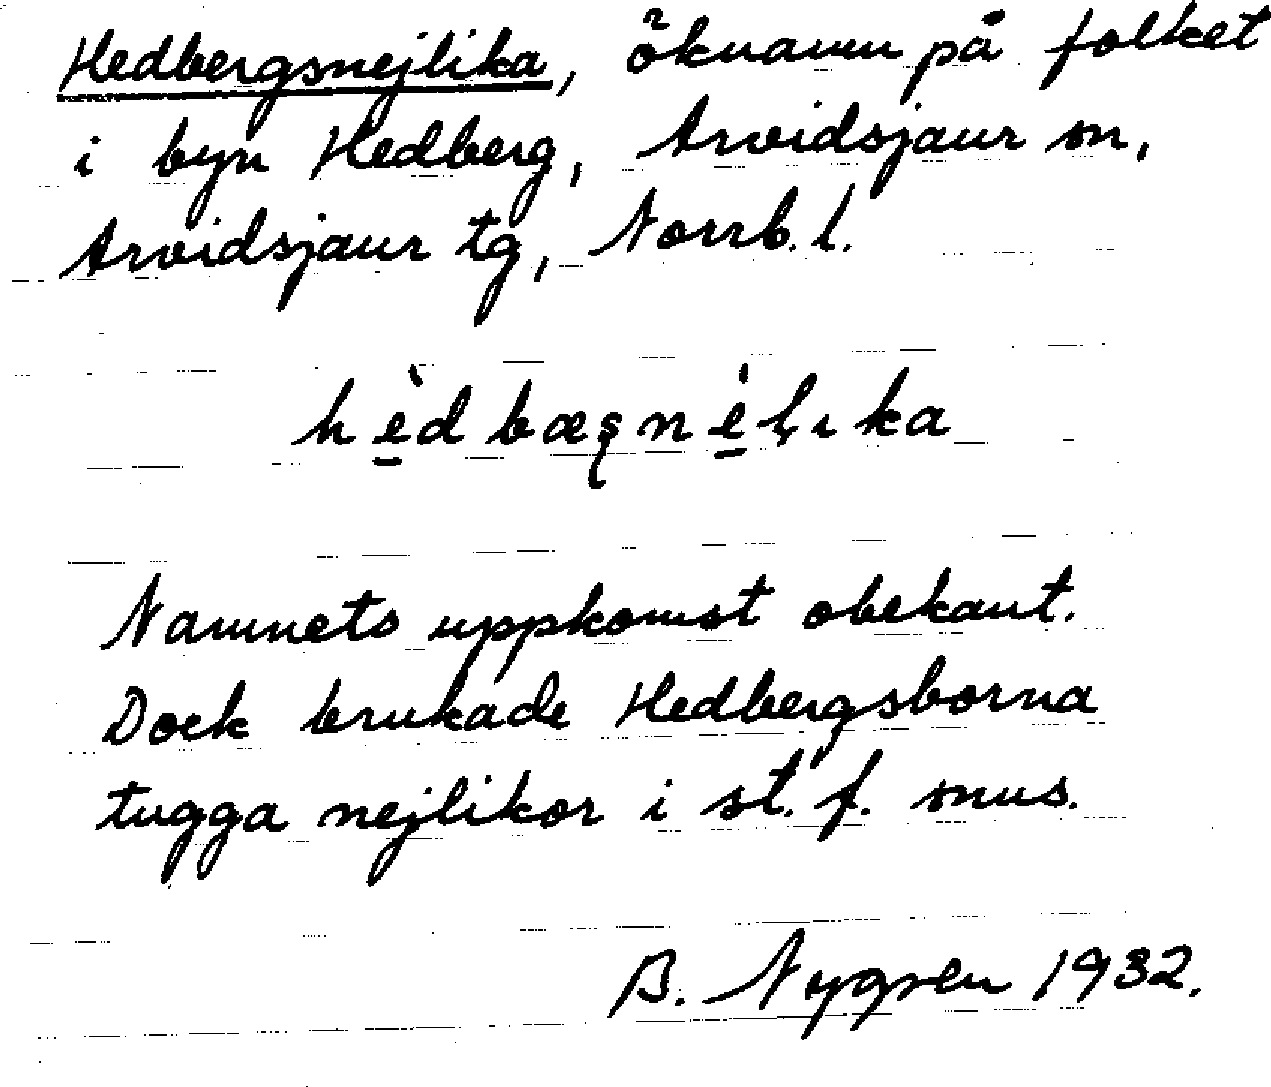 Hedbergsnejlika, öknamn på folket
i byn Hedberg, Arvidsjaur sn,
Arvidsjaur tg, Norrb. l.
hèdbæʂnélịka
Namnets uppkomst obekant.
Dock brukade Hedbergsborna
tugga nejlikor i st. f. snus.
B. Nygren 1932.